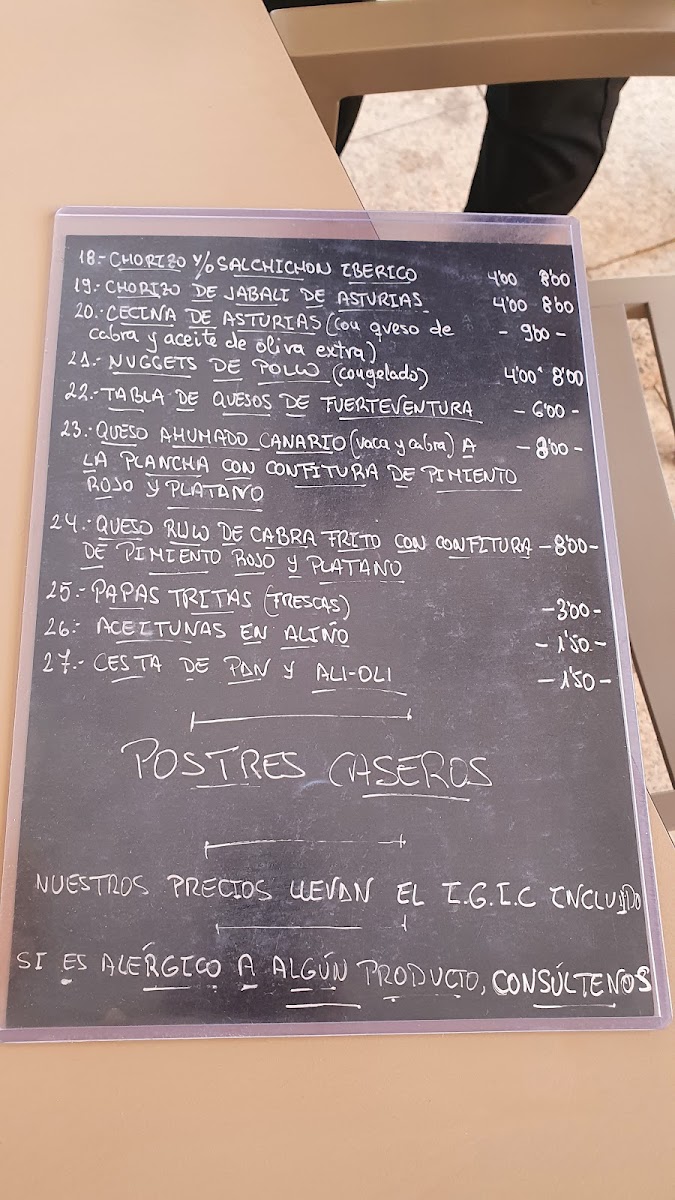 18.- CHORIZO Y/O SALCHICHON IBERICO 4'00 8'00
19.- CHORIZO DE JABALI DE ASTURIAS 4'00 8'00
20.- CECINA DE ASTURIAS (con queso de - 9'00 -
cabra y aceite de oliva extra)
21.- NUGGETS DE POLLO (congelado) 4'00 8'00
22.- TABLA DE QUESOS DE FUERTEVENTURA - 6'00 -
23.- QUESO AHUMADO CANARIO (vaca y cabra) A - 8'00 -
LA PLANCHA CON CONFITURA DE PIMIENTO
ROJO Y PLÁTANO
24.- QUESO RULO DE CABRA FRITO CON CONFITURA - 8'00 -
DE PIMIENTO ROJO Y PLATANO
25.- PAPAS FRITAS (FRESCAS) - 3'00 -
26.- ACEITUNAS EN ALIÑO - 1'50 -
27.- CESTA DE PAN Y ALI-OLI - 1'50 -
POSTRES CASEROS
NUESTROS PRECIOS LLEVAN EL I.G.I.C INCLUIDO
SI ES ALÉRGICO A ALGÚN PRODUCTO, CONSÚLTENOS